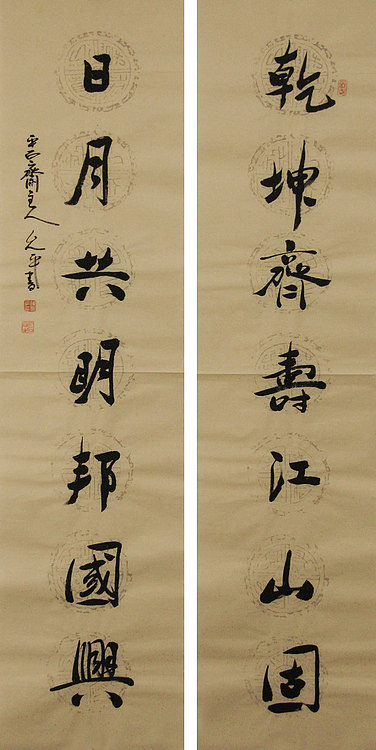 乾坤齊壽江山固
日月共明邦國興
平齋主人允平書